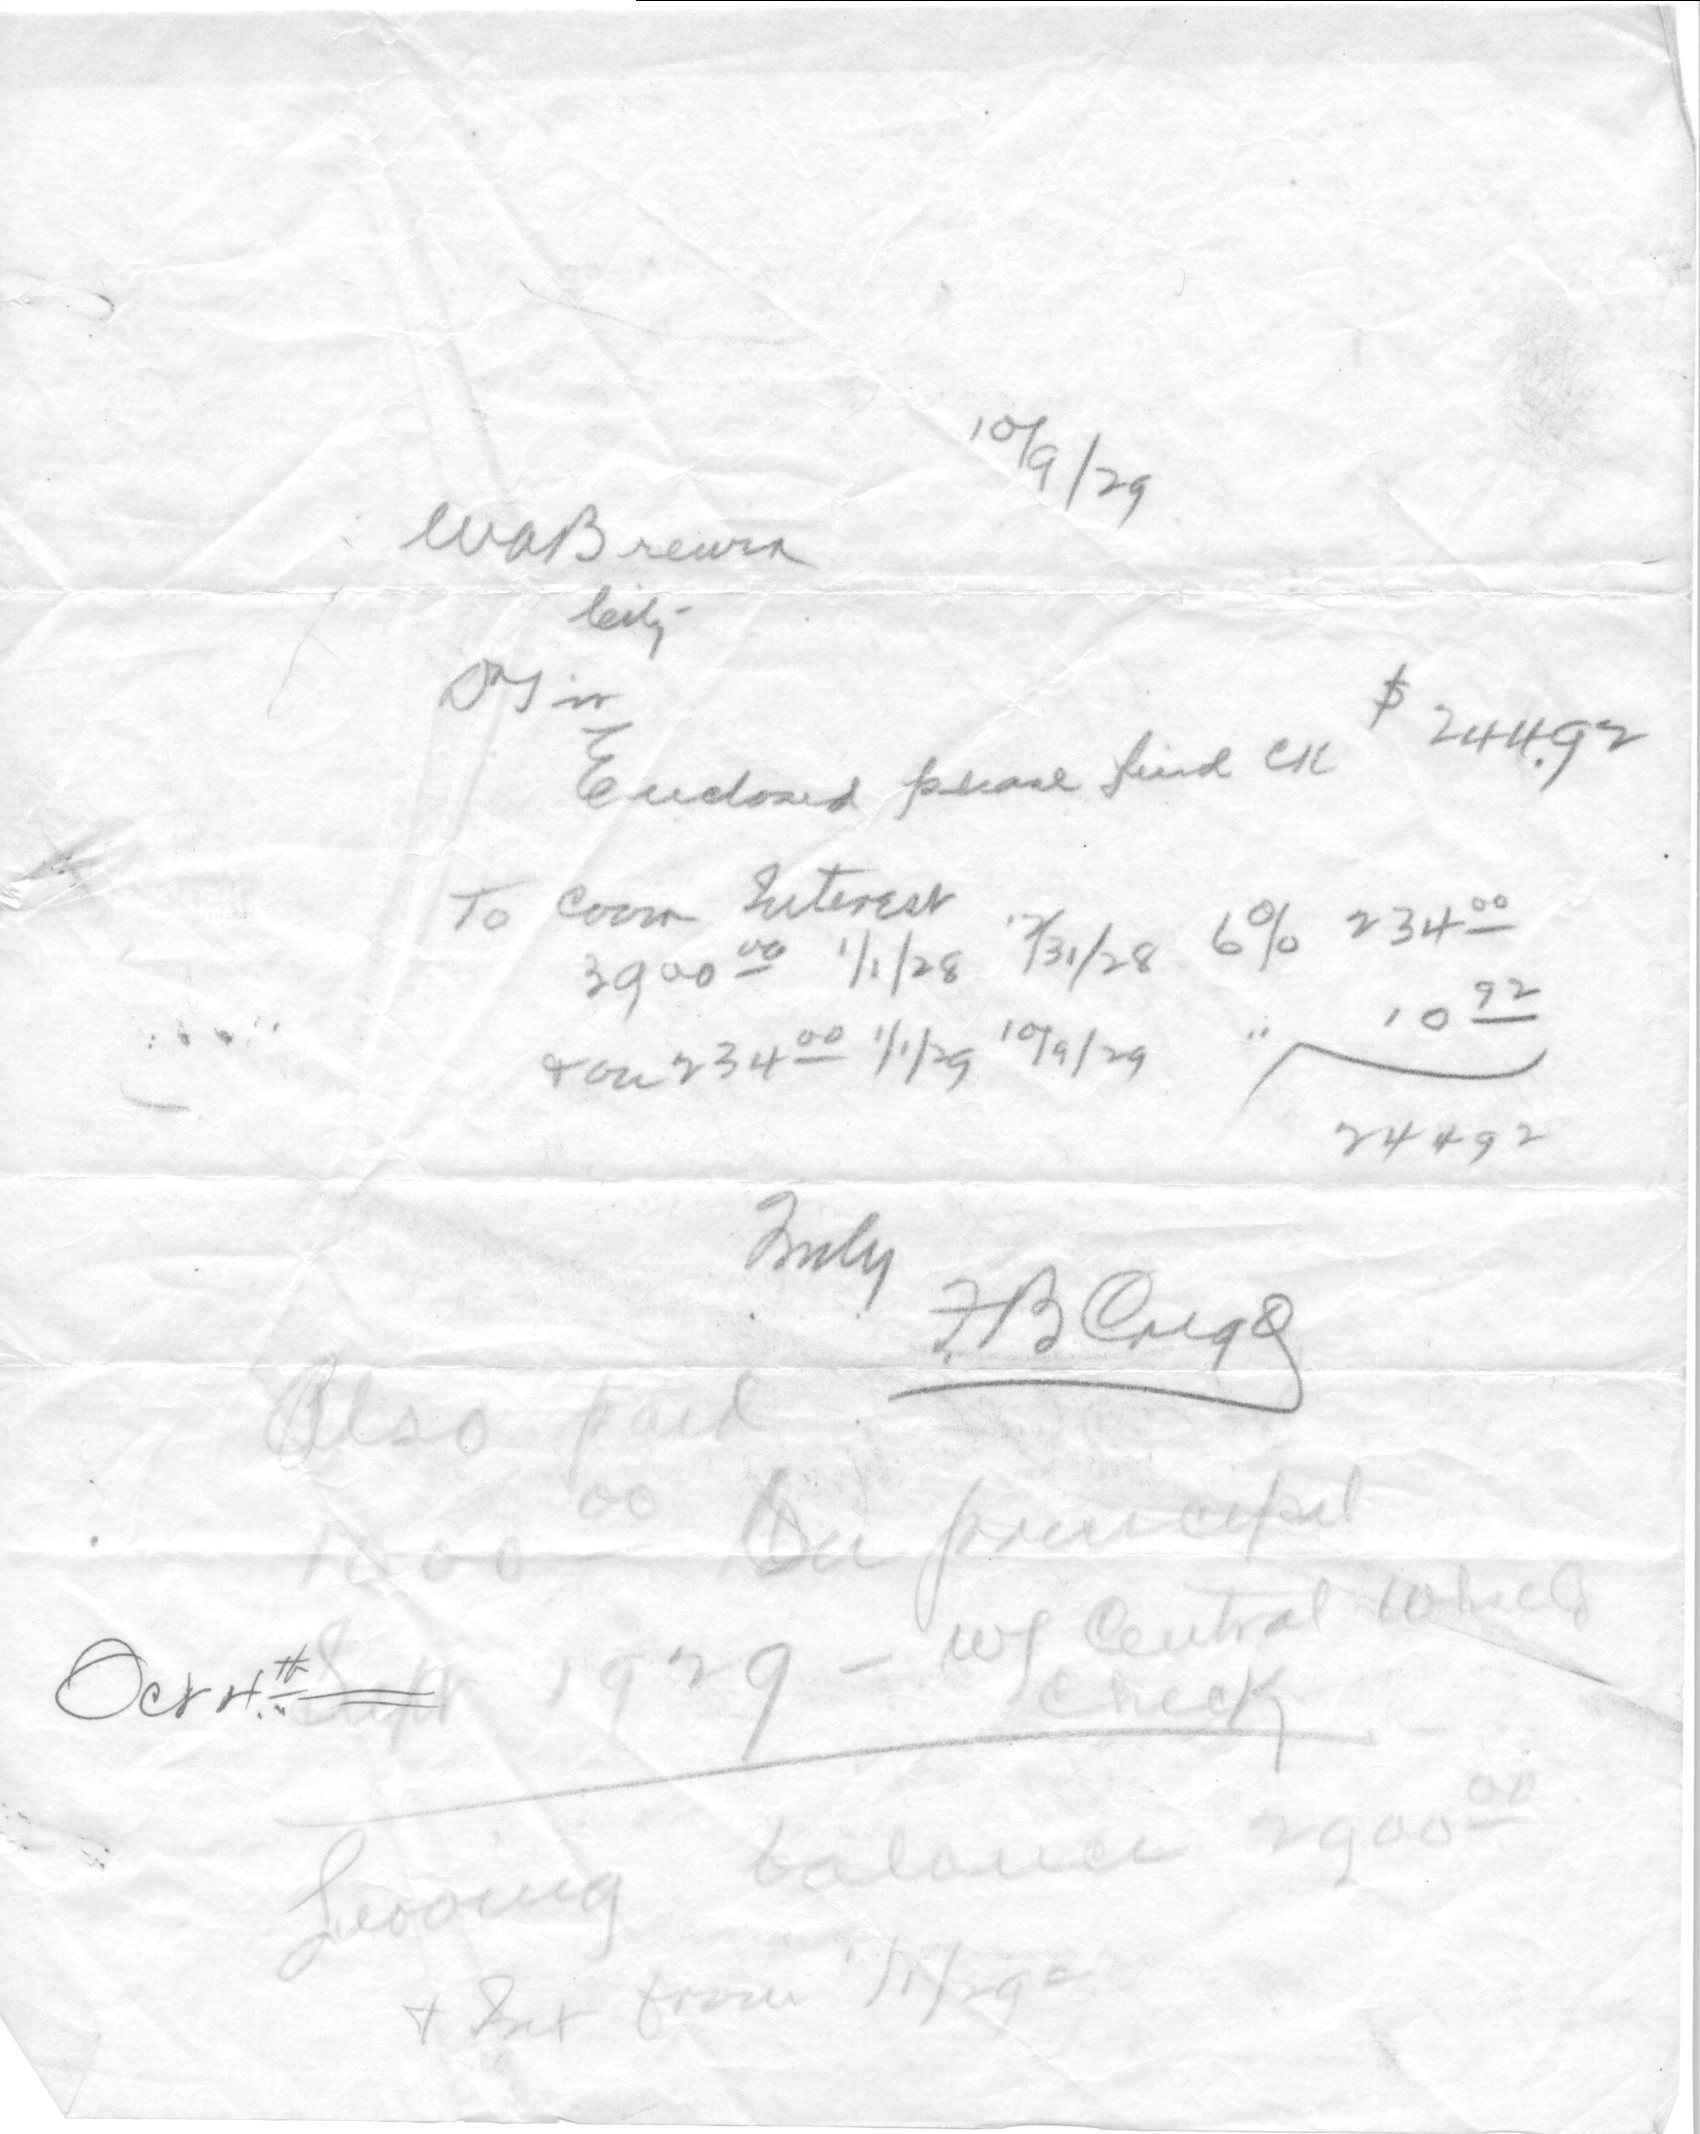 10/9/29
WA Brewer
City
Dr Sir
Enclosed please find CK $ 244.92
To Covr Interest
3900 00 1/1/28 12/31/28 6% 234 00
+ on 234 00 1/1/29 10/9/29 " 10 92
244 92
Truly
F.B.
Also paid
1000 00 On principal
Oct 4th Sept 1929 - w/ Central Wheel
Check
Leaving balance 2900 00
+ Int from 1/1/29